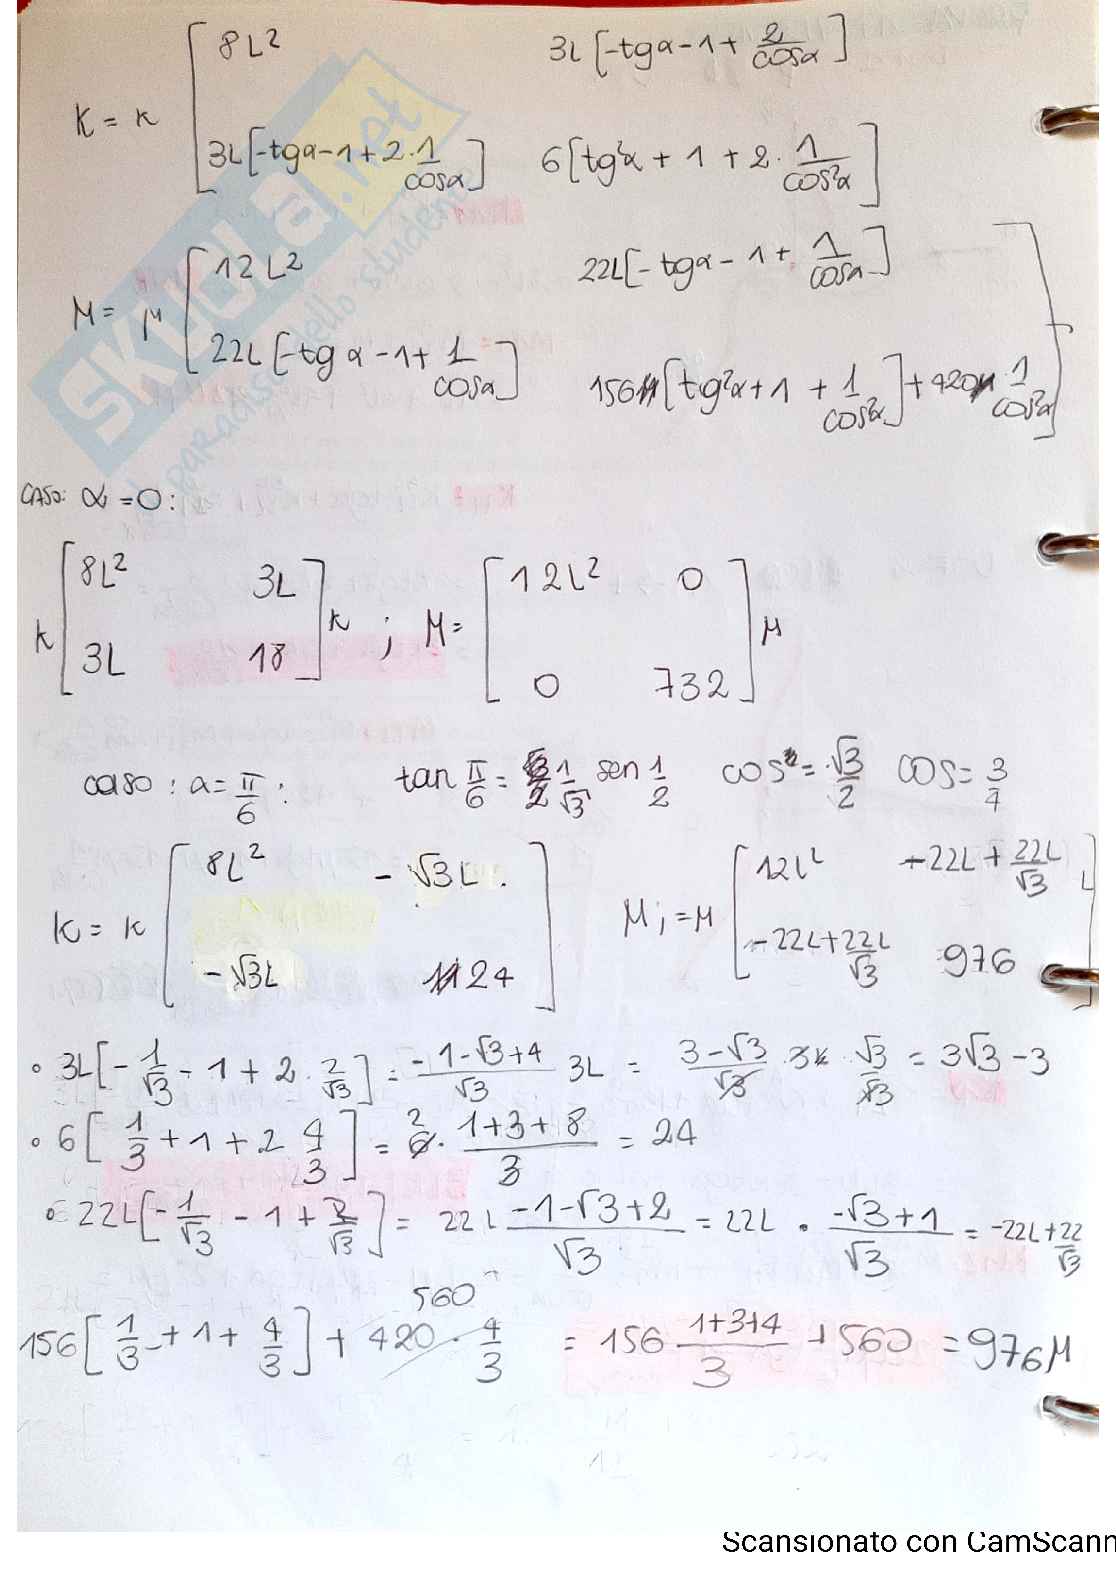 K = k [ 8L²   3L [-tgα-1+ 2/cosα ]
3L[-tgα-1+2·1/cosα]   6[tg²α + 1 + 2·1/cos²α] ]
M = μ [ 12L²   22L[-tgα-1+ 1/cosα]
22L[-tgα-1+ 1/cosα]   156[tg²α+1+1/cos²α]+420·1/cos²α ]
CASO: α=0:
k [ 8L²   3L
3L   18 ] k ; M= [ 12L²   0
0   732 ] μ
caso : a= π/6 :   tan π/6 = 1/√3 sen 1/2   cos = √3/2   cos = 3/4
K = k [ 8L²   -√3L
-√3L   24 ]   M;=μ [ 12L²   -22L+22L/√3
-22L+22L/√3   976 ]
• 3L[-1/√3-1+2·2/√3] = -1-√3+4/√3 3L = 3-√3/√3 · 3L · √3/√3 = 3√3-3
• 6[1/3+1+2 4/3] = 6·1+3+8/3 = 24
2
• 22L[-1/√3-1+2/√3] = 22L -1-√3+2/√3 = 22L · -√3+1/√3 = -22L+22/√3
560
156[1/3+1+4/3]+420·4/3 = 156 1+3+4/3 +560 = 976μ
SKUOLA.net
il paradiso dello studente
Scansionato con CamScann